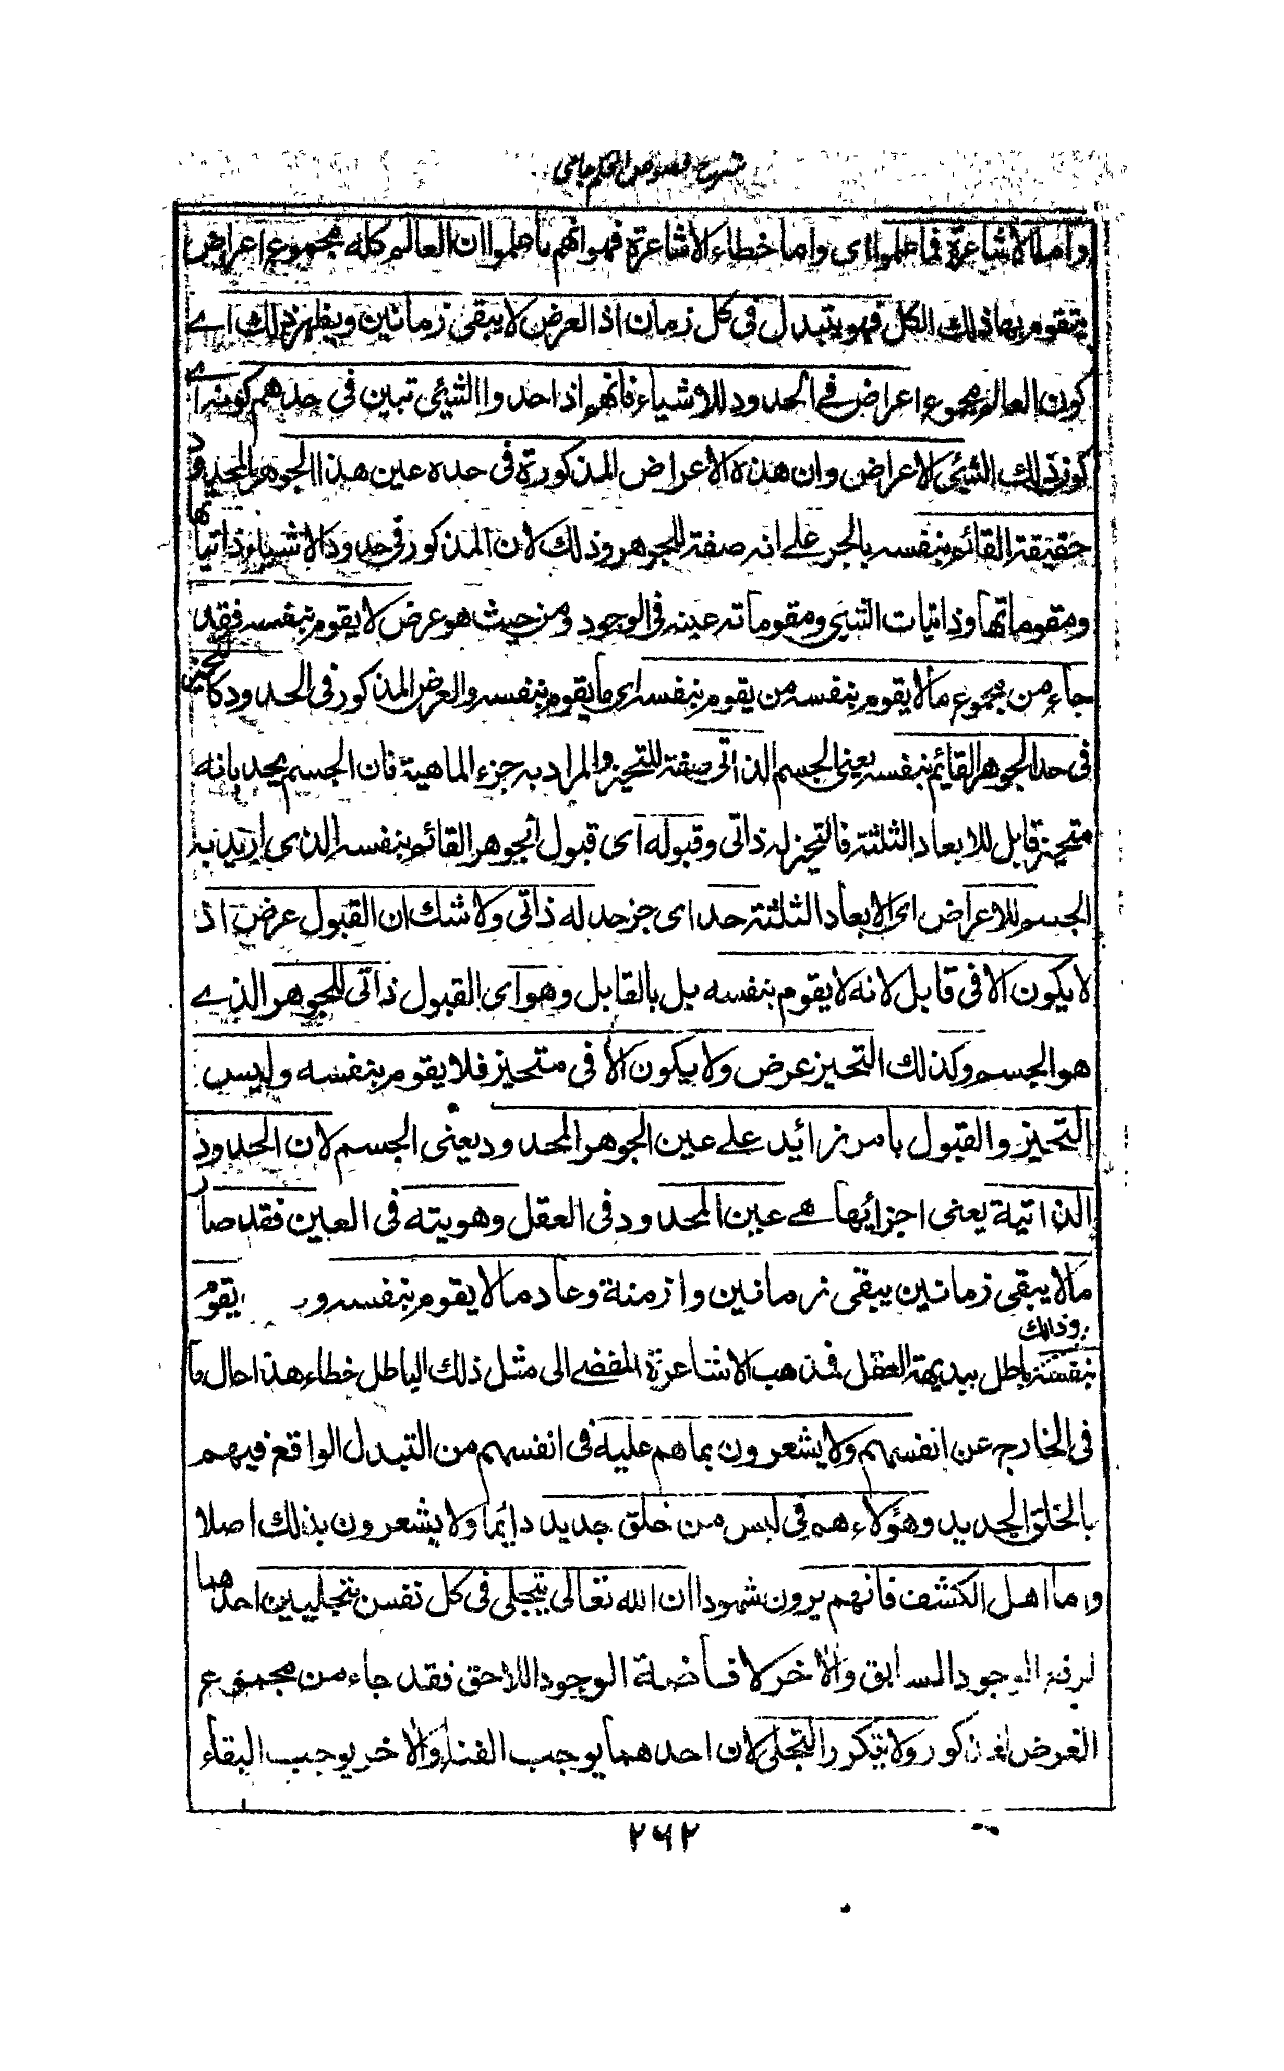 شرح فصوص الحكم جامى
واما الاشاعرة فما علموا اى واما خطاء الاشاعرة فهو انهم ما علموا ان العالم كله مجموع اعراض
يتقوم بها ذلك الكل فهو يتبدل فى كل زمان اذ العرض لا يبقى زمانين ويظهر ذلك اے
كون العالم مجموع اعراض فے الحدود للاشياء فانهم اذا حدوا الشيئ تبين فى حدهم كونه اے
كون ذلك الشيئ الاعراض وان هذه الاعراض المذكورة فى حده عين هذا الجوهر المحدود
حقيقة القائم بنفسه بالجر علے انه صفة للجوهر وذلك لان المذكور فى حدود الاشياء ذاتياتها
ومقوماتها وذاتيات الشيئ ومقوماته عينه فى الوجود ومن حيث هو عرض لا يقوم بنفسه فقد
جاء من مجموع ما لا يقوم بنفسه من يقوم بنفسه اى ما يقوم بنفسه والعرض المذكور فى الحدود كالتحيز
فى حد الجوهر القائم بنفسه يعنى الجسم الذاتى صفة للتحيز والمراد به جزء الماهية فان الجسم يحد بانه
متحيز قابل للابعاد الثلثة فالتحيز له ذاتى وقبوله اى قبول الجوهر القائم بنفسه الذى اريد به
الجسم للاعراض اى الابعاد الثلثة حد اى جزء حد له ذاتى ولا شك ان القبول عرض اذ
لا يكون الا فى قابل لانه لا يقوم بنفسه بل بالقابل وهو اى القبول ذاتى للجوهر الذے
هو الجسم وكذلك التحيز عرض ولا يكون الا فى متحيز فلا يقوم بنفسه وليس
التحيز والقبول بامر زائد علے عين الجوهر المحدود يعنى الجسم لان الحدود
الذاتية يعنى اجزائها هے عين المحدود فى العقل وهويته فى العين فقد صار
ما لا يبقى زمانين يبقى زمانين وازمنة وعاد ما لا يقوم بنفسه يقوم
بنفسه وذلك باطل ببديهة العقل فمذهب الاشاعرة المفضے الى مثل ذلك الباطل خطاء هذا حال ما
فى الخارج عن انفسهم ولا يشعرون بما هم عليه فى انفسهم من التبدل الواقع فيهم
بالخلق الجديد وهؤلاء هم فى لبس من خلق جديد دائما ولا يشعرون بذلك اصلا
واما اهل الكشف فانهم يرون شهودا ان الله تعالى يتجلى فى كل نفس بتجليين احدهما
لرفع الوجود السابق والاخر لافاضة الوجود اللاحق فقد جاء من مجموع
العرض المذكور ولا يتكرر التجلى لان احدهما يوجب الفناء والاخر يوجب البقاء
٢٦٢